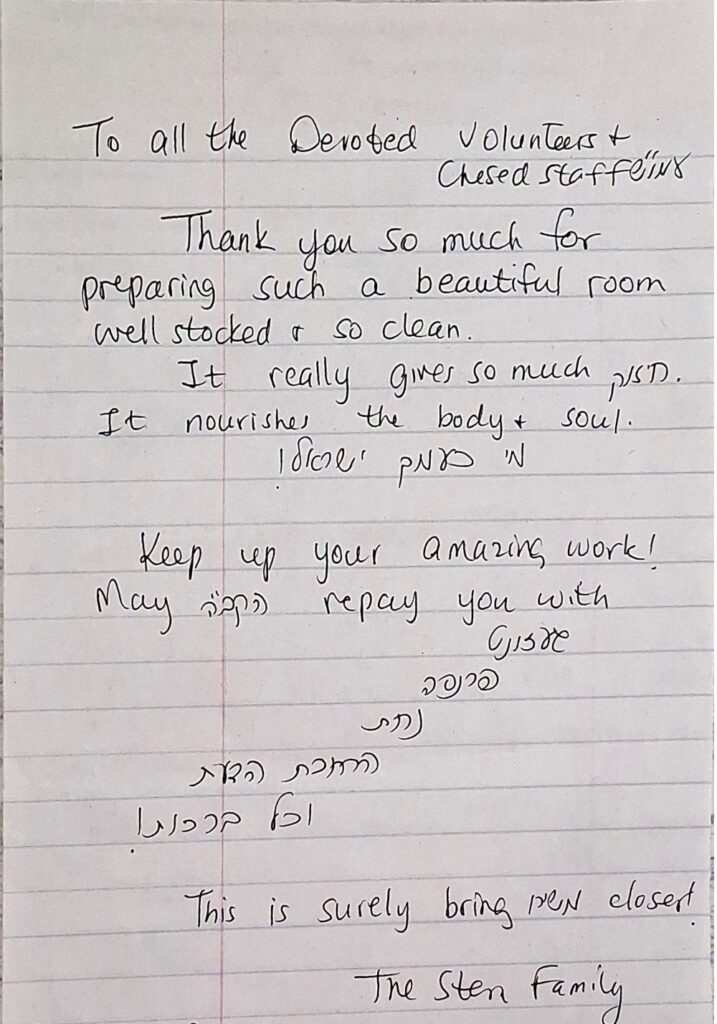 To all the Devoted Volunteers +
Chesed staff עמו"ש
Thank you so much for
preparing such a beautiful room
well stocked & so clean.
It really gives so much חיזוק.
It nourishes the body + soul.
מי כעמך ישראל!
Keep up your amazing work!
May הקב"ה repay you with
געזונט
פרנסה
נחת
הרחבת הדעת
וכל ברכות!
This is surely bring משיח closer!
The Stern Family